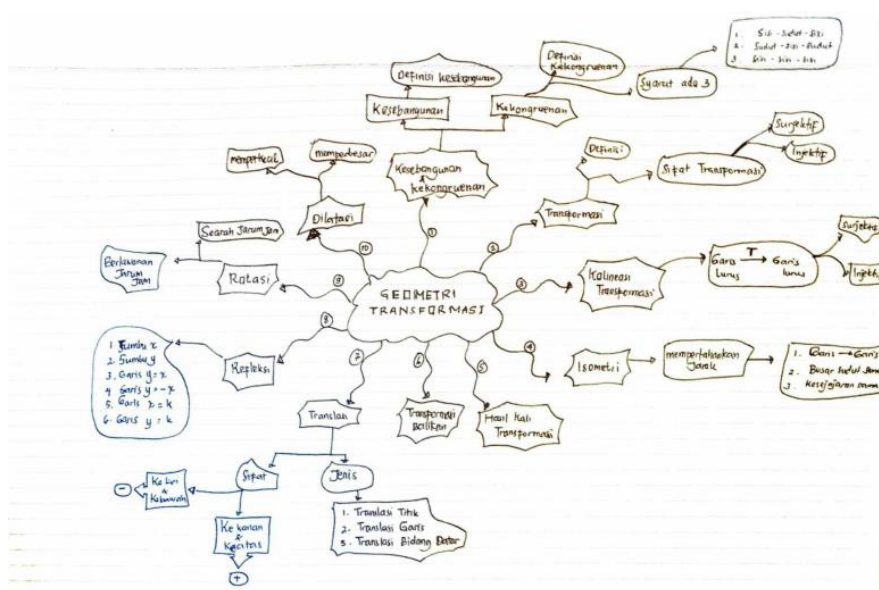 GEOMETRI
TRANSFORMASI
1
Kesebangunan
&
Kekongruenan
Kesebangunan
Definisi Kesebangunan
Kekongruenan
Definisi
Kekongruenan
Syarat ada 3
1. Sisi - Sudut - Sisi
2. Sudut - Sisi - Sudut
3. Sisi - Sisi - Sisi
2
Transformasi
Definisi
Sifat Transformasi
Surjektif
Injektif
3
Kolineasi
Transformasi
Garis
Lurus
T
Garis
Lurus
Surjekti
Injekti
4
Isometri
mempertahankan
Jarak
1. Garis → Garis
2. Besar Sudut
3. Kesejajaran
5
Hasil Kali
Transformasi
6
Transformasi
Balikan
7
Translasi
Sifat
Ke kiri
&
Kebawah
-
Ke kanan
&
Keatas
+
Jenis
1. Translasi Titik
2. Translasi Garis
3. Translasi Bidang Datar
8
Refleksi
1 Sumbu x
2. Sumbu y
3. Garis y = x
4 Garis y = -x
5. Garis x = k
6. Garis y = k
9
Rotasi
Searah Jarum Jam
Berlawanan
Jarum
Jam
10
Dilatasi
memperkecil
memperbesar